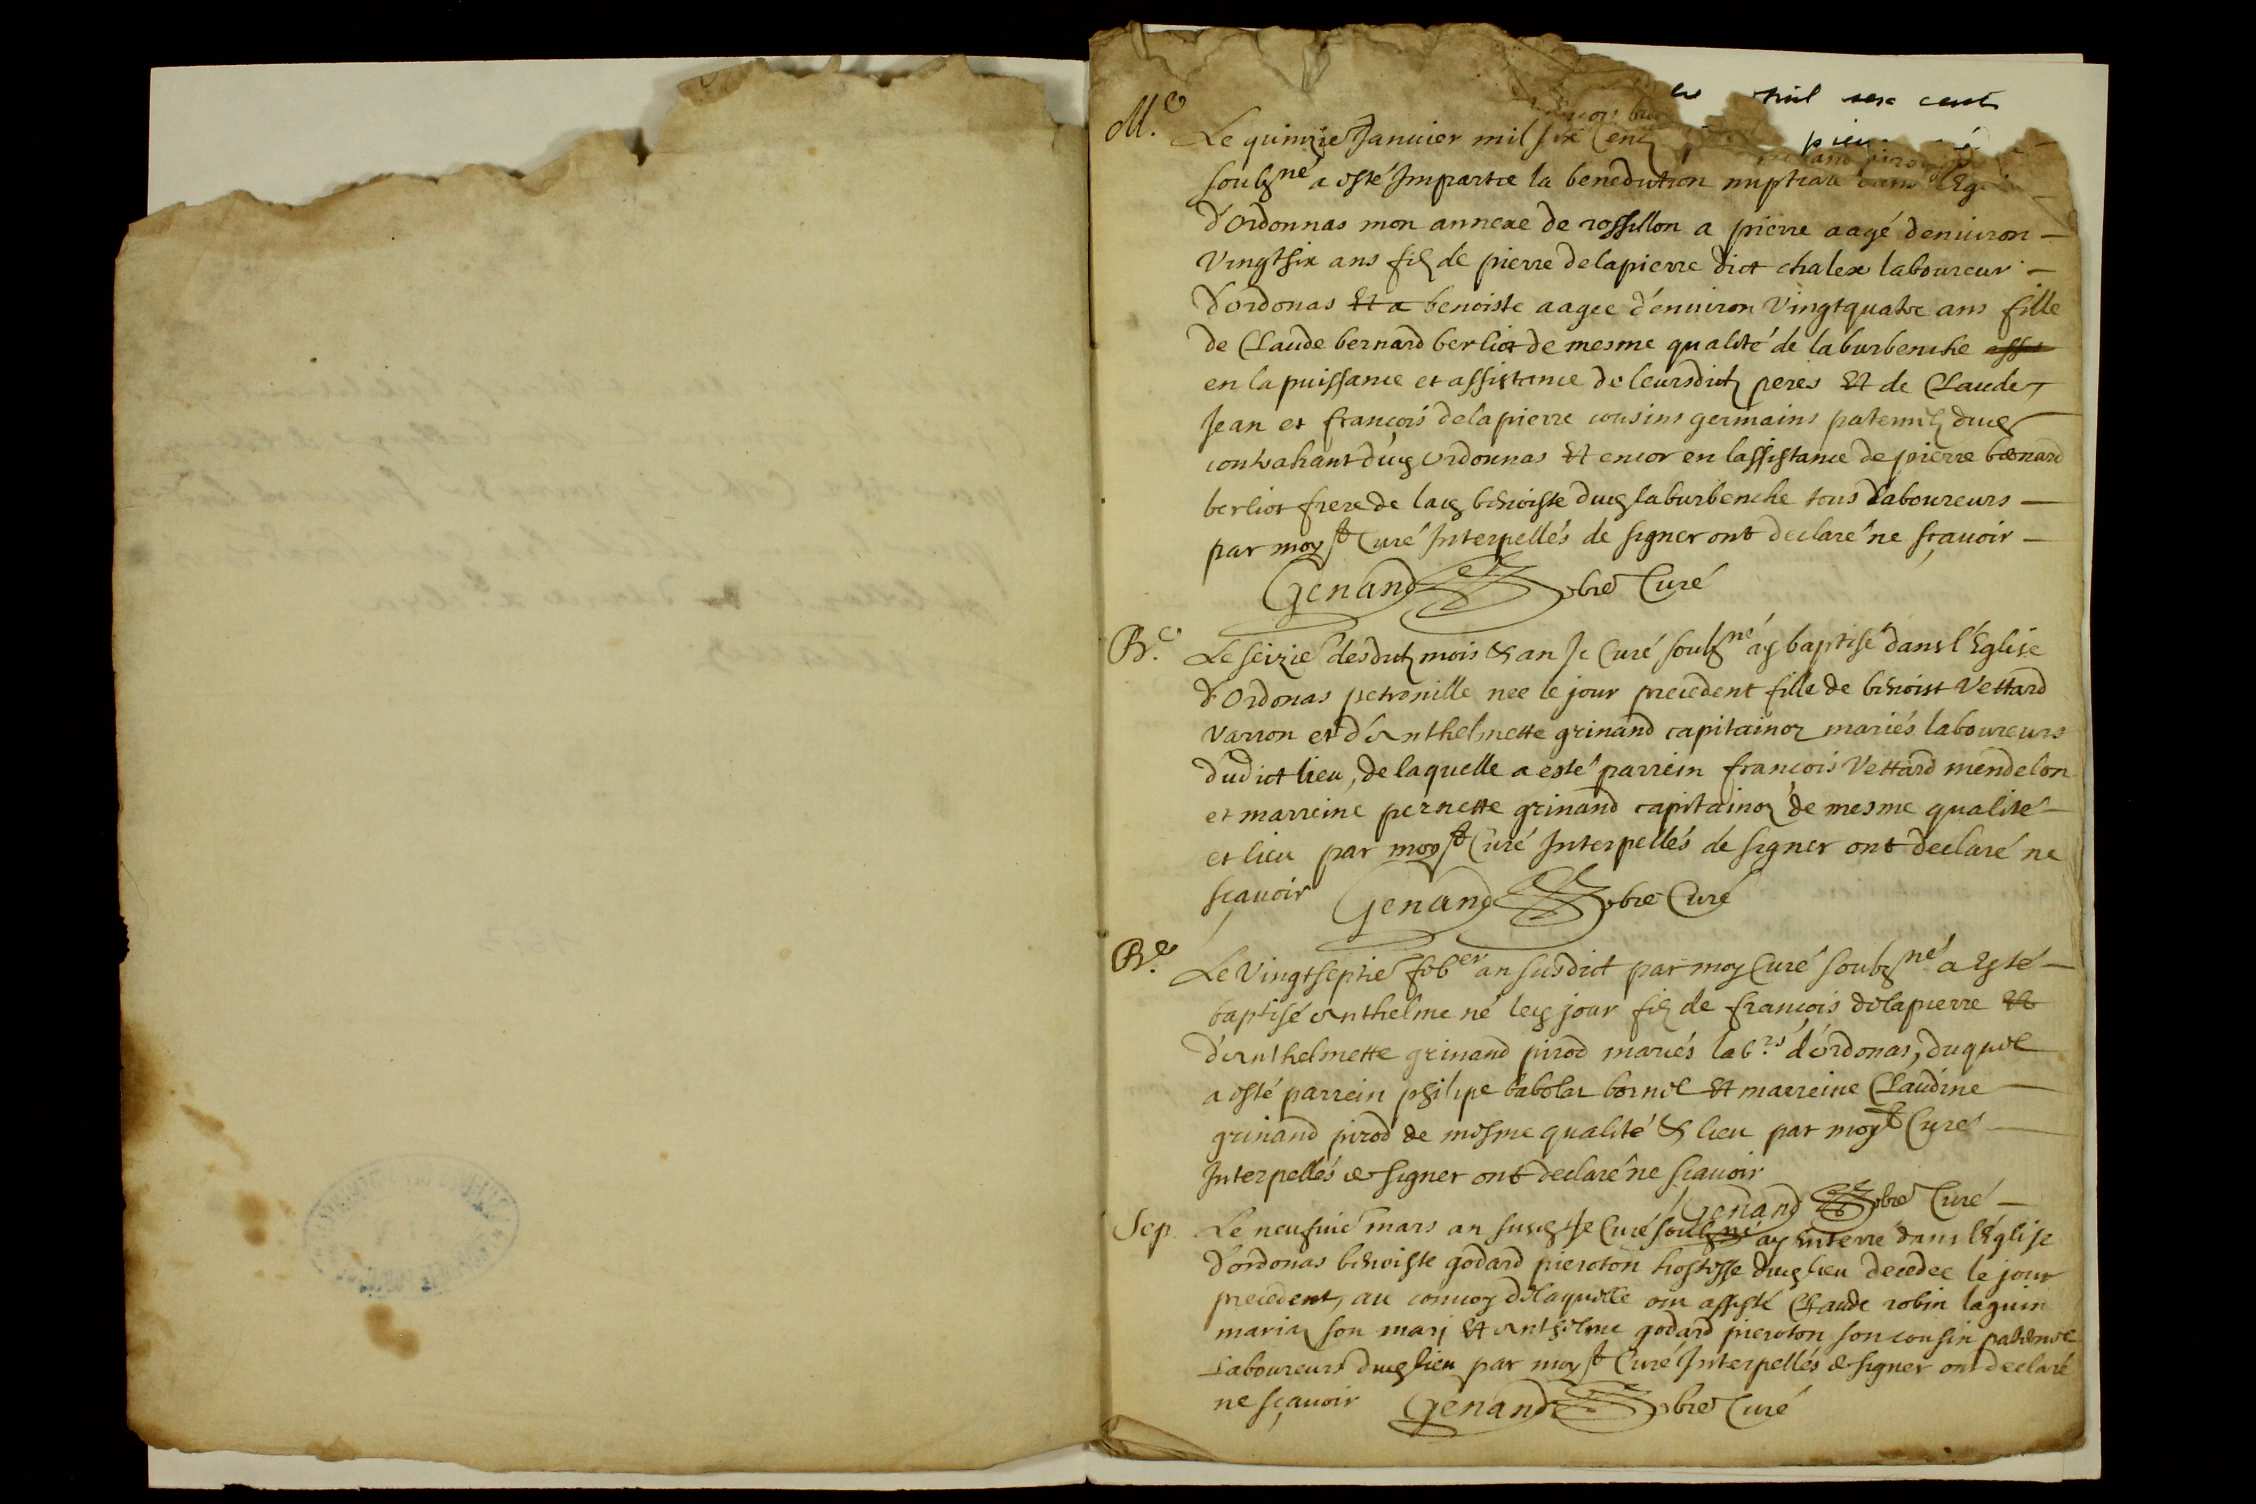 mil six cent
M.e
Le quinzie Janvier mil six cent
soubzné a esté Impartie la benediction nuptiale dans l'Eg
d'Ordonnas mon annexe de rossillon a pierre aagé denuiron
Vingtsix ans filz de pierre delapierre dict chalex laboureur
d'ordonas Et a benoiste aagee d'enuiron Vingtquatre ans fille
de Claude bernard berliot de mesme qualité de laburbenche
en la puissance et assistance de leursdictz peres Et de Claude
Jean et francois delapierre cousins germains paternelz ducg
contrahant ducg ordonnas Et encor en lassistance de pierre bernard
berliot frere de lacg benoiste ducg laburbenche tous laboureurs
par moy st Curé Interpellés de signer ont declaré ne sçauoir
Genand pbre Curé
B.e
Le seizie desdictz mois & an Je Curé soubzné ay baptisé dans l'Eglise
d'Ordonas petronille nee le jour precedent fille de benoist Vettard
Varron et d'Anthelmette grinand capitainoz mariés laboureurs
dudict lieu, de laquelle a esté parrein francois Vettard mendelon
et marreine pernette grinand capitainoz de mesme qualité
et lieu par moy st Curé Interpellés de signer ont declaré ne
sçauoir Genand pbre Curé
B.e
Le Vingtseptie feber an susdict par moy Curé soubzné a Esté
baptisé Anthelme né lecg jour filz de francois delapierre Et
d'Anthelmette grinand pirod mariés labrs d'ordonas, duquel
a esté parrein philipe babolat bornel Et marreine Claudine
grinand pirod de mesme qualité & lieu par moy st Curé
Interpellés de signer ont declaré ne sçauoir
Genand pbre Curé
Sep.
Le neufuie mars an suscg Je Curé soubzné ay Enterré dans l'Eglise
d'ordonas benoiste godard pieroton hostesse ducg lieu decedee le jour
precedent, au conuoy delaquelle ont assisté Claude robin laguin
mariaz son marj Et Anthelme godard pieroton son cousin paternel
Laboureurs ducg lieu par moy st Curé Interpellés de signer ont declaré
ne sçauoir Genand pbre Curé